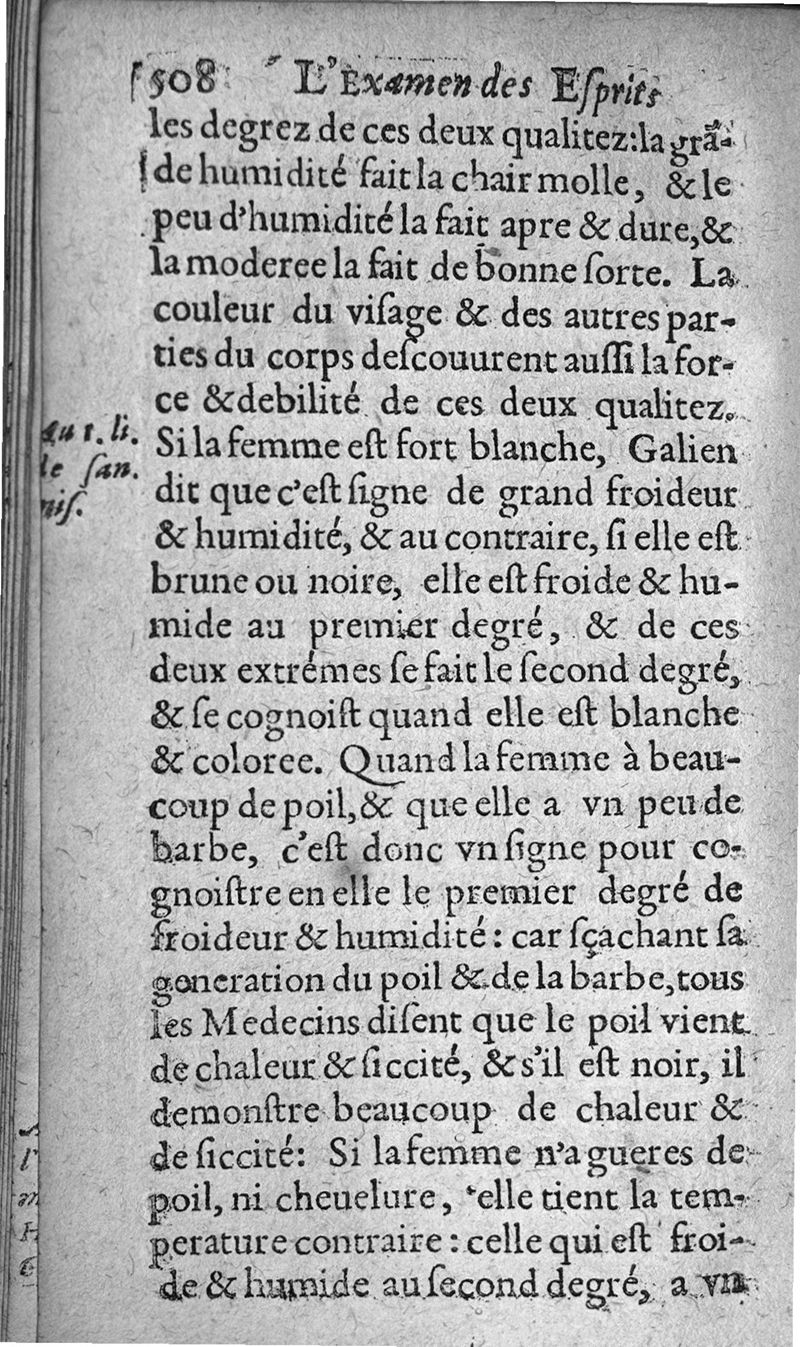 508 L'Examen des Eſprits
les degrez de ces deux qualitez: la grã-
de humidité fait la chair molle, & le
peu d'humidité la fait apre & dure, &
la moderee la fait de bonne ſorte. La
couleur du viſage & des autres par-
ties du corps deſcouurent auſſi la for-
ce & debilité de ces deux qualitez.
Au 1. li.
de ſan.
niſ.
Si la femme eſt fort blanche, Galien
dit que c'eſt ſigne de grand froideur
& humidité, & au contraire, ſi elle eſt
brune ou noire, elle eſt froide & hu-
mide au premier degré, & de ces
deux extrémes ſe fait le ſecond degré,
& ſe cognoiſt quand elle eſt blanche
& coloree. Quand la femme à beau-
coup de poil, & que elle a vn peu de
barbe, c'eſt donc vn ſigne pour co-
gnoiſtre en elle le premier degré de
froideur & humidité: car ſçachant ſa
generation du poil & de la barbe, tous
les Medecins diſent que le poil vient
de chaleur & ſiccité, & s'il eſt noir, il
demonſtre beaucoup de chaleur &
de ſiccité: Si la femme n'a gueres de
poil, ni cheuelure, elle tient la tem-
perature contraire: celle qui eſt froi-
de & humide au ſecond degré, a vn